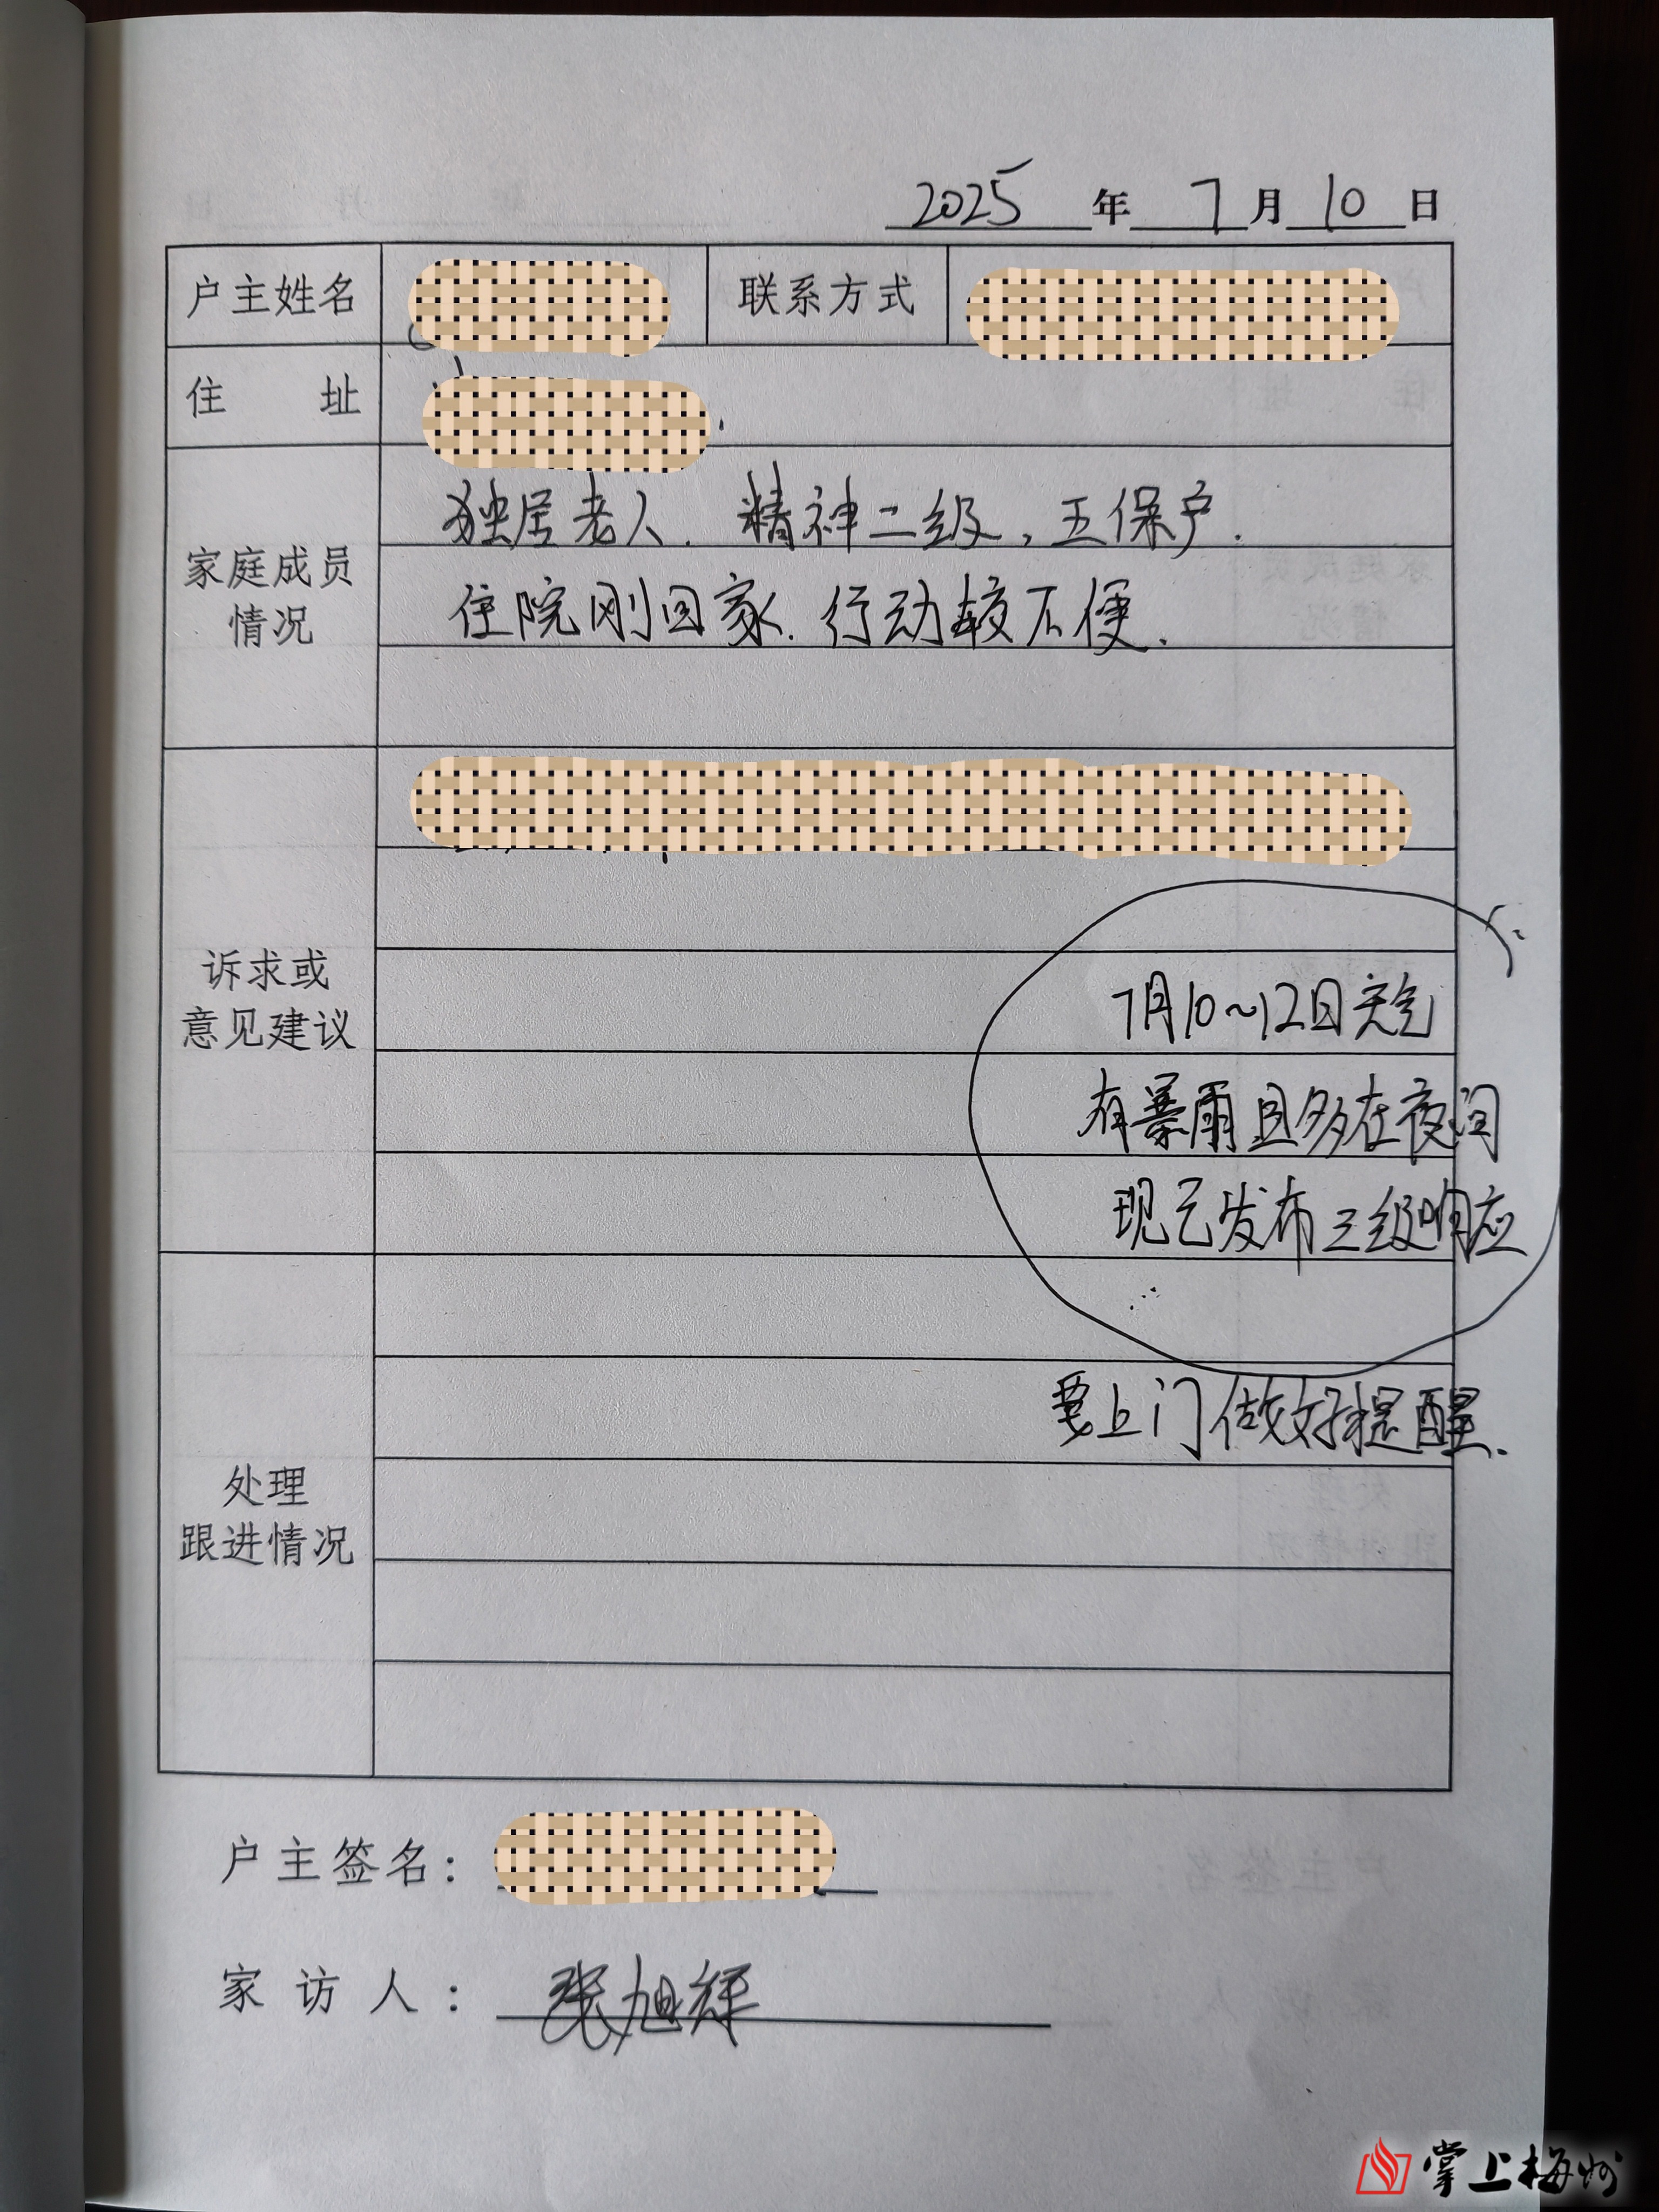 2025 年 7 月 10 日
户主姓名 联系方式
住 址
家庭成员
情况
独居老人. 精神二级, 五保户.
住院刚回家. 行动较不便.
诉求或
意见建议
7月10~12日天气
有暴雨且多在夜间
现已发布三级响应
要上门做好提醒.
处理
跟进情况
户主签名:
家访人: 张旭辉
掌上梅州